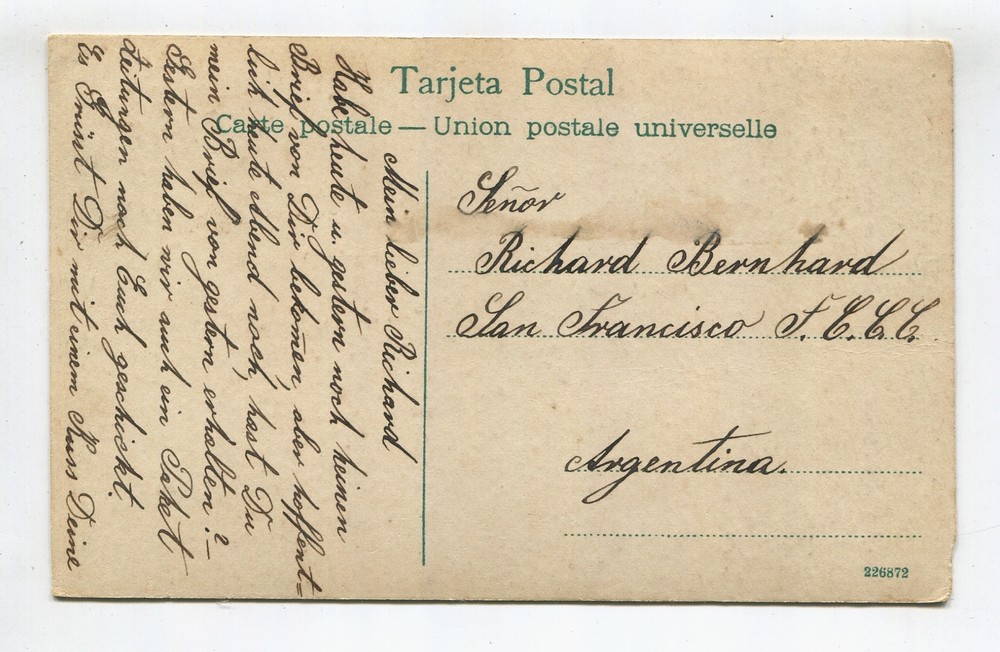 Tarjeta Postal
Carte postale — Union postale universelle
Mein lieber Richard
Habe heute u. gestern noch keinen
Brief von Dir bekomen, aber hoffent=
lich heute Abend noch, hast Du
mein Brief von gestern erhalten? –
Gestern haben wir auch ein Paket
Zeitungen nach Euch geschickt.
Es Grüst Dir mit einem Kuss Deine
Señor
Richard Bernhard
San Francisco F.C.C.C.
Argentina.
226872